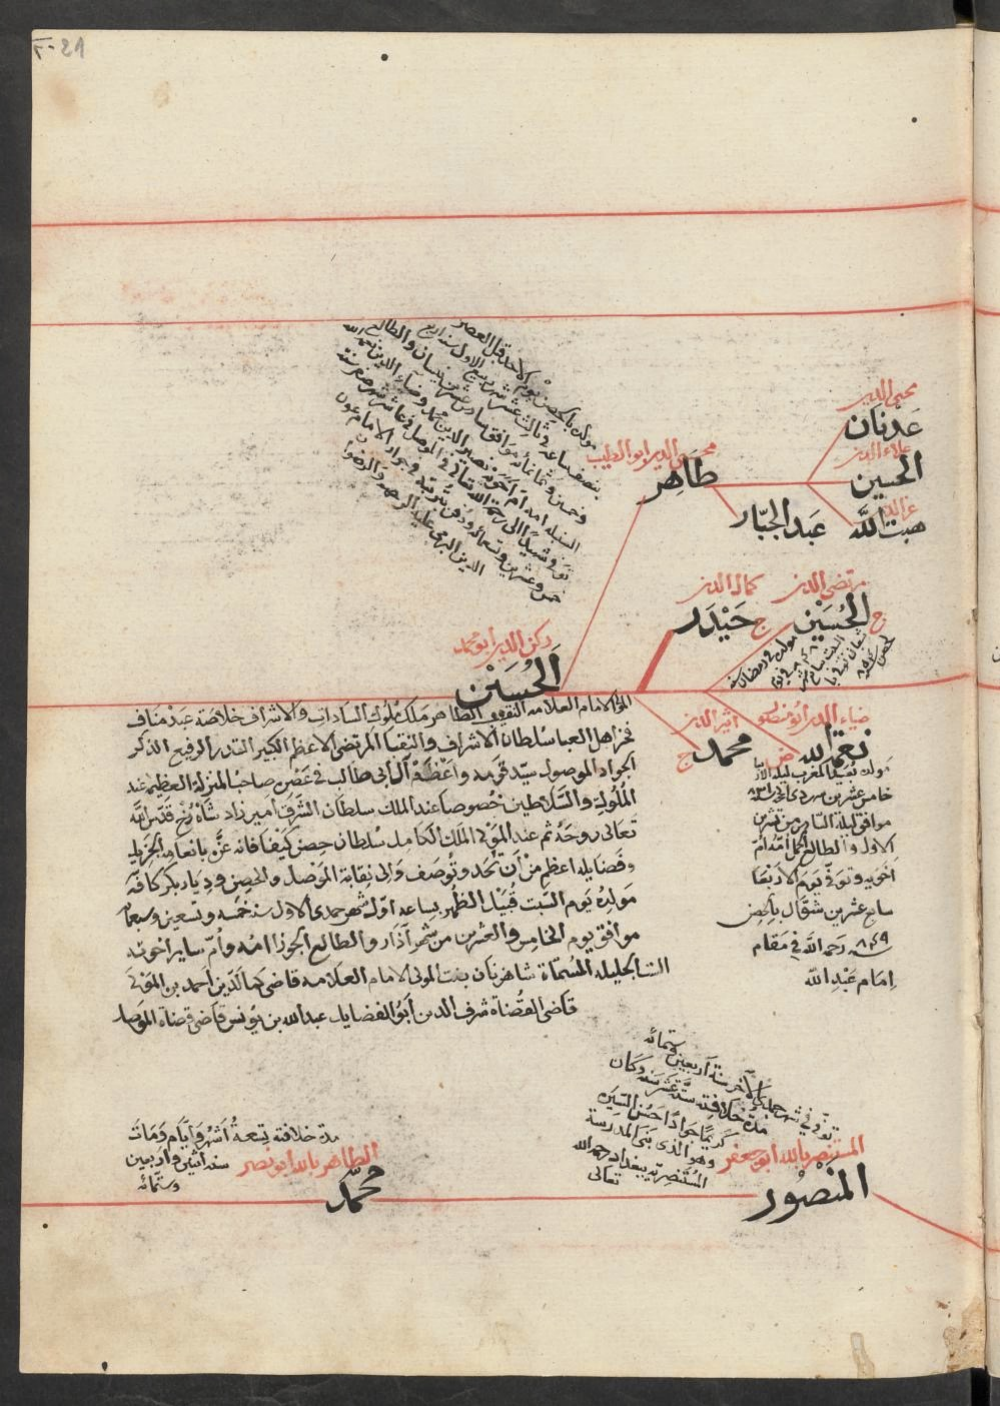 محيي الدين
عدنان
علاء الدين
الحسين
عز الدين
هبت الله
محيي الدين ابو الطيب
طاهر
عبد الجبّار
مولده بالحصن يوم الاحد قبل العصر
بنصف ساعه في ثالث عشر شهر ربيع الاول سنه اربع
وخمسين وثمانمائه موافق سادس عشر نيسان والطالع
السنبله امه ام اخوته نصير الدين محمد وضياء الدين نعمه الله
توفي شهيدًا الى رحمة الله تعالى في الموصل في عاشر شهر صفر سنة
خمس وعشرين وتسمائه ودفن بتربته في جوار الامام عون
الدين الهي عليه الرحمه والرضوان
مرتضى الدين
كمال الدين
ج الحُسَين
ج حَيْدَر
مولده في رمضان سنه
ركن الدين أبو محمد
الحُسَين
ضياء الدين أبو منصور
اثير الدين
نعمة الله
ج محمد
المولى الامام العلامه النقيب الطاهر مَلك ملوك السادات والاشراف خلاصة عبد مناف
فخر اهل العبا سُلطان الاشراف والنقبا المرتضى الاعظم الكبير القدر الرفيع الذكر
الجواد الموصول سيّد قومه واعْظَمْ آل أبي طالب في عَصْرِه صاحب المنزلة العظيمه عند
المُلوك والسَّلاطين خصوصا عند الملك سلطان الشرق أمير زاد شاه رُخ قدّس الله
تعالى روحَهُ ثم عند الموَلى الملك الكامل سُلطان حصن كيفا فانه عزّه بانعامه الجزيله
وفضايله اعظم مِنْ اَنْ تُحَد وتُوصَف وَلى نِقابة المَوْصل والحصن وديار بكر كافّه
مَولدُهُ يَوم السَّبت قُبَيْل الظهر بساعه اوّل شهر جمدى الاول سنه خمسه وتسعين وسبعمائه
موافق يوم الخامِس والعشرين من شهر آذار والطالع الجوزا امُّه وأُمّ ساير اخوته
الستّ الجليله المُسمّاة شاهزنان بنت المولى الامام العلامه قاضي كمال الدين احمد بن المولى
قاضي القُضاة شرف الدين أبو الفضايل عبد الله بن يُونس قاضي قضاة الموصل
مولده بُعَيد المغرب ليلة الاربعا
خامس عشرين من جمدى الاخر سنة ٨٣١
موافق ليلة الثامن من تشرين
الاول والطالع الحمل امّه امّ
اخويه وتوفّي يَوم الاربعَا
سابع عشرين شوّال بالحصن
٨٤٩ رَحمه الله في مقام
إمام عبد الله
توفي في شهر جمادى الآخر سنة اربعين وستمائه
مدة خلافته ستة عشر سنه وكان
كريمًا جوادًا حسن السيره
وهو الذي بنى المدرسة
المُستنصريّه ببغداد رحمه الله
تعالى
المستنصر بالله ابو جعفر
المنصُور
مدة خلافته تسعةُ أشهُر وأيّام وَمَات
سنه اثنين واربعين
وستمّائه
الظاهر بالله ابو نصر
محمّد